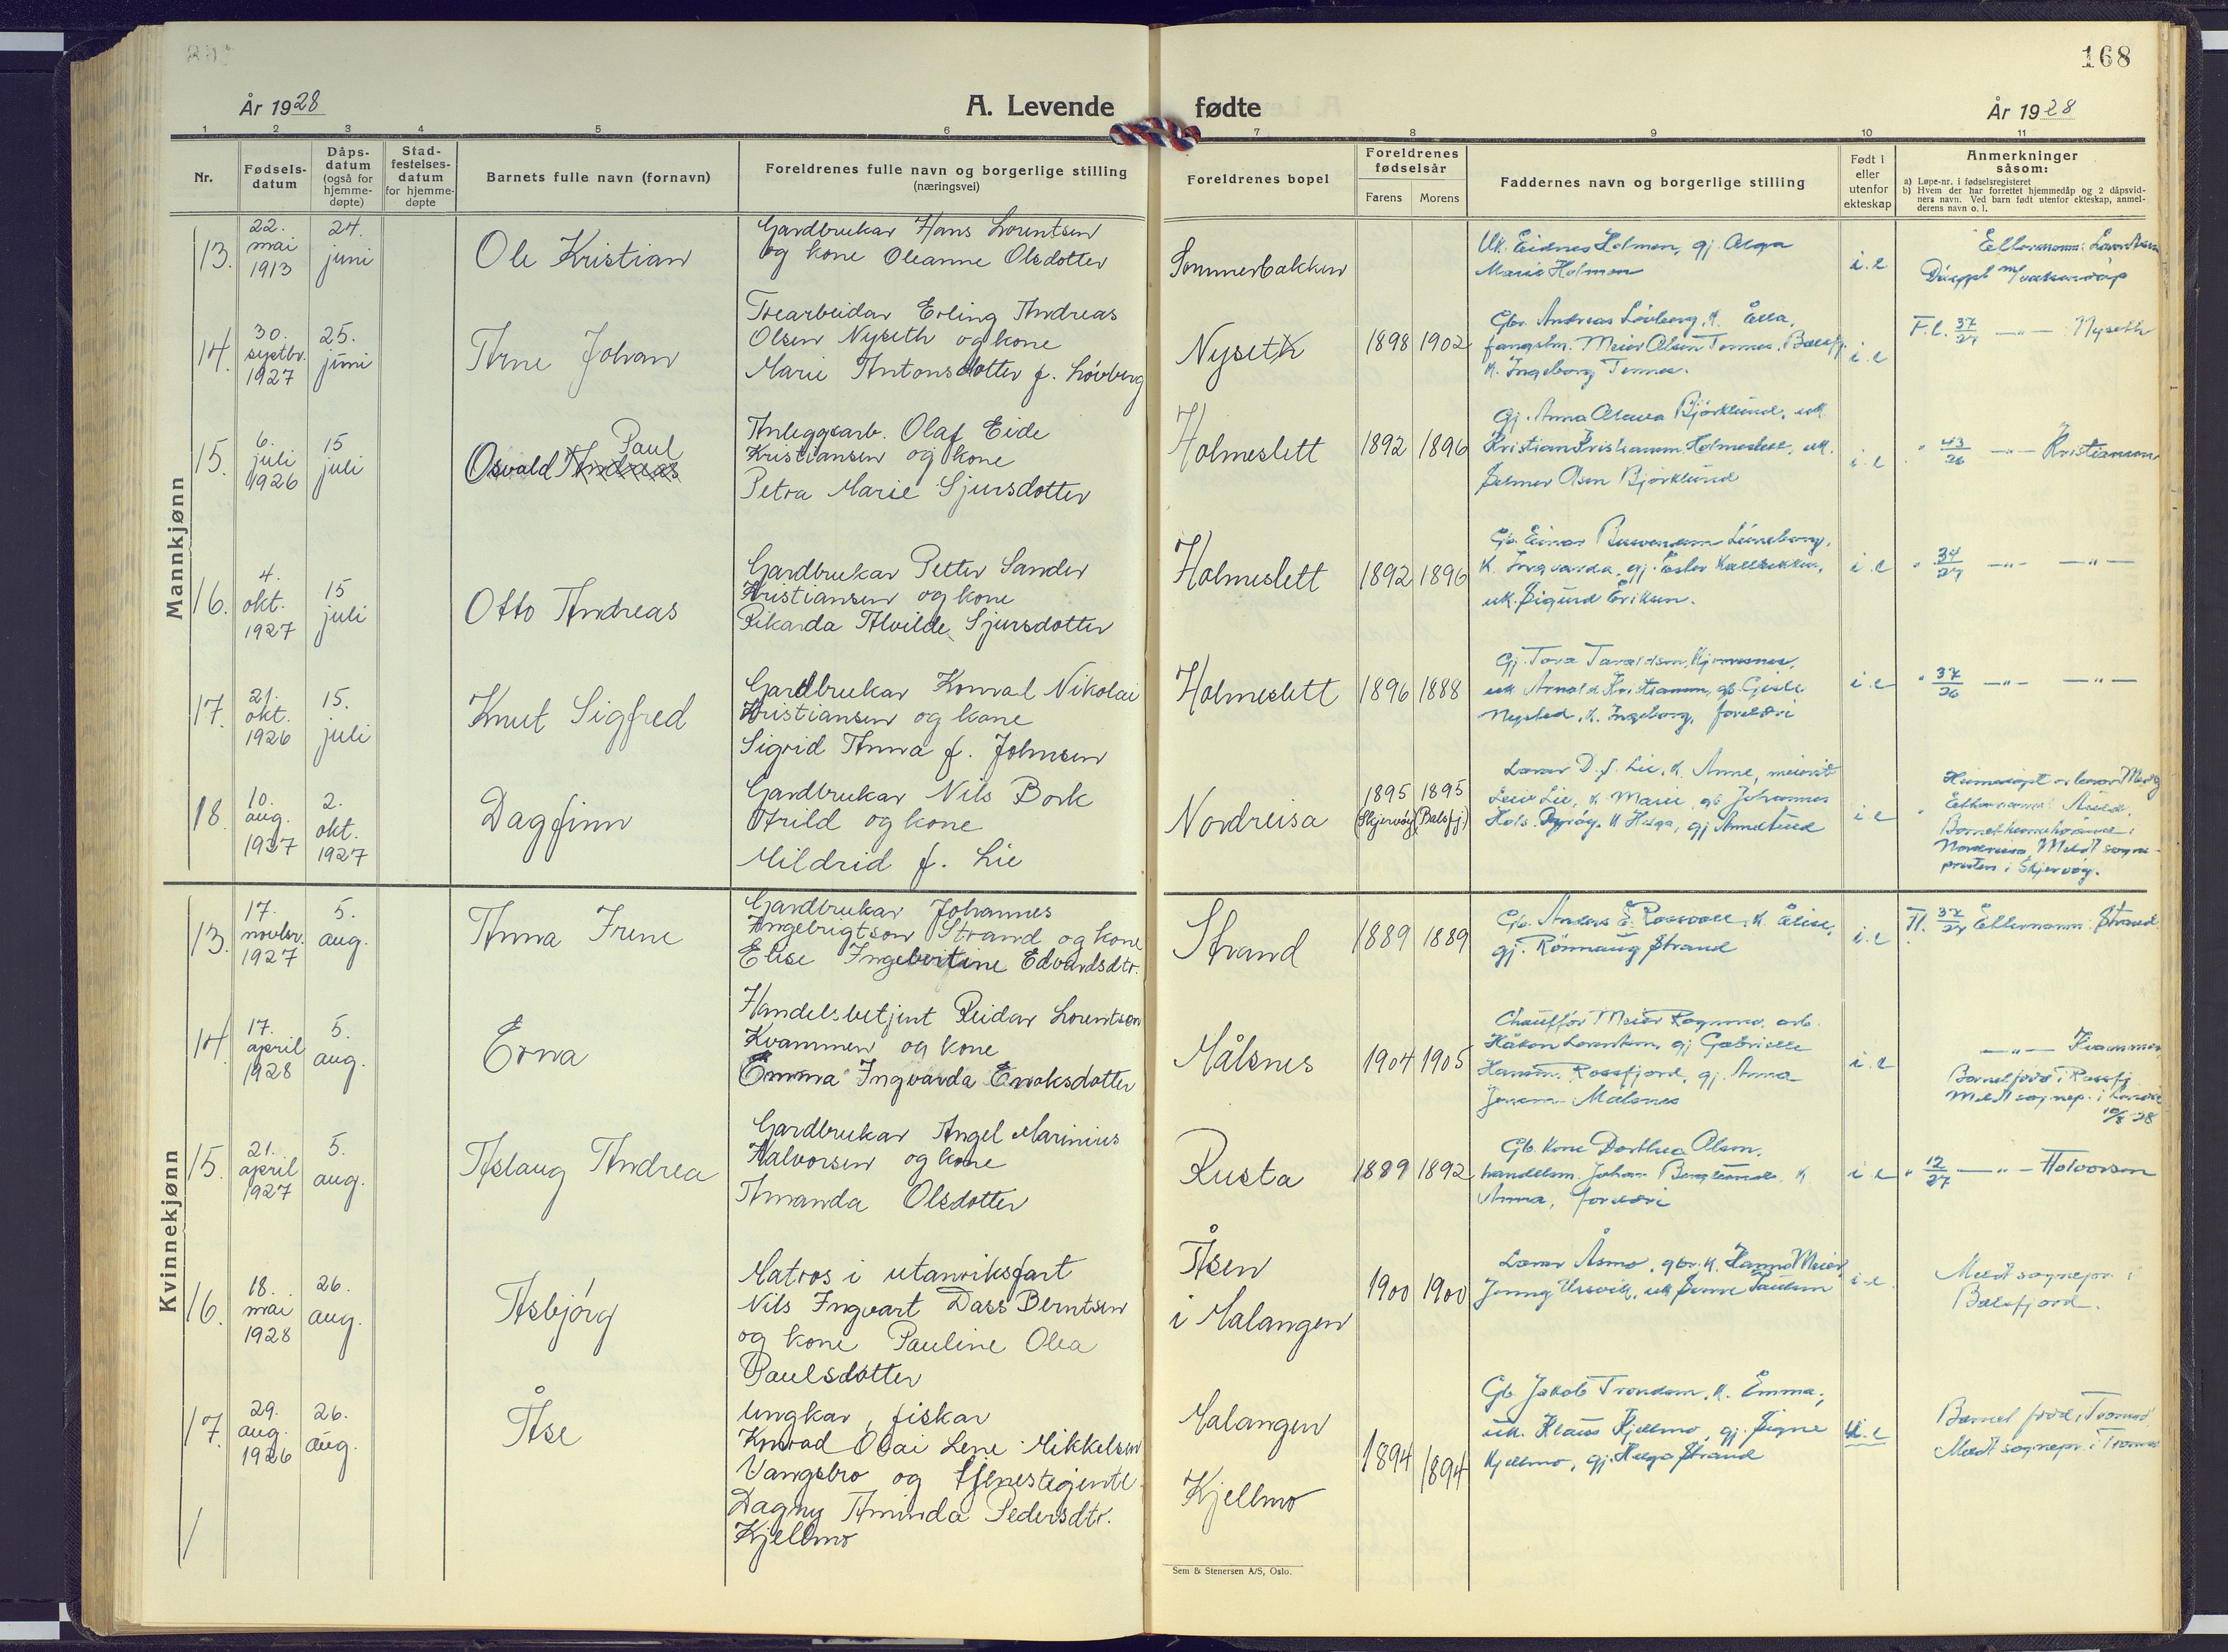 168
År 1928
A. Levende fødte
År 1928
1 2 3 4 5 6 7 8 9 10 11
Nr.
Fødsels-
datum
Dåps-
datum
(også for
hjemme-
døpte)
Stad-
festelses-
datum
for hjemme-
døpte
Barnets fulle navn (fornavn)
Foreldrenes fulle navn og borgerlige stilling
(næringsvei)
Foreldrenes bopel
Foreldrenes
fødselsår
Farens Morens
Faddernes navn og borgerlige stilling
Født i
eller
utenfor
ekteskap
Anmerkninger
såsom:
a) Løpe-nr. i fødselsregisteret
b) Hvem der har forrettet hjemmedåp og 2 dåpsvid-
ners navn. Ved barn født utenfor ekteskap, anmel-
derens navn o. l.
Mannkjønn
13.
22.
mai
1913
24.
juni
Ole Kristian
Gardbrukar Hans Lorentsen
og kone Oleanne Olsdotter
Sommerbakken
Uk. Eidnes Holmen, gj. Olga
Marie Holmen
i. e
14.
30.
septbr.
1927
25.
juni
Arne Johan
Trearbeidar Erling Andreas
Olsen Nyseth og kone
Marie Antonsdotter f. Løvberg
Nyseth
1898 1902
Gbr. Andreas Løvberg, k. Ella,
fangstm. Meier Olsen Tennes, Balsfj.
k. Ingeborg Tennes.
i. e
F.l. 37/27 —"— Nyseth
15.
6.
juli
1926
15
juli
Paul
Osvald Andreas
Anleggsarb. Olaf Eide
Kristiansen og kone
Petra Marie Sjursdotter
Holmeslett
1892 1896
Gj. Anna Olava Bjørklund, uk.
Kristian Kristiansen Holmeslett, uk.
Selmer Olsen Bjørklund
i. e
" 43/26 —"— Kristiansen
16.
4.
okt.
1927
15
juli
Otto Andreas
Gardbrukar Petter Sander
Kristiansen og kone
Rikarda Alvilde Sjursdotter
Holmeslett
1892 1896
Gb. Einar
k. Ingvarda, gj. Ester
uk. Sigurd Eriksen.
i. e
" 34/27 —"— —"—
17.
21.
okt.
1926
15.
juli
Knut Sigfred
Gardbrukar Konrad Nikolai
Kristiansen og kone
Sigrid Anna f. Johnsen
Holmeslett
1896 1888
Gj. Tora
uk. Arnold Kristiansen, gb.
Nysted, k. Ingeborg, foreldri
i. e
" 37/26 —"— —"—
18.
10.
aug.
1927
2.
okt.
1927
Dagfinn
Gardbrukar Nils Bork
Arild og kone
Mildrid f. Lie
Nordreisa
1895 1895
(Skjervøy) (Balsfj)
Lærar D. J. Lie, k. Anne, meierist
Leiv Lie, k. Marie, gb. Johannes
k Helga, gj
i. e
Barnet
Nordreisa. Meldt sogne-
presten i Skjervøy.
Kvinnekjønn
13.
17.
novbr.
1927
5.
aug.
Anna Irene
Gardbrukar Johannes
Angebrigtson Strand og kone
Elise Ingebertine Edvardsdtr.
Strand
1889 1889
Gb. Anders E. Rossvoll, k. Elise,
gj. Rønnaug Strand
i. e
Fl. 37/27 Etternamn: Strand.
14.
17.
april
1928
5.
aug.
Erna
Handelsbetjent Reidar Lorentsen
Kvammen og kone
Emma Ingvarda Enoksdotter
Målsnes
1904 1905
Chauffør Meier Rognmo, arb.
Håkon Lorentsen, gj Gabrielle
Hansen Rossfjord, gj. Anna
Jensen Målsnes
i. e
—"— Kvammen
Barnet født i Rossfj
Meldt sognep. i Lenvik
10/8 28
15.
21.
april
1927
5.
aug.
Aslaug Andrea
Gardbrukar Angel Marinius
Halvorsen og kone
Amanda Olsdotter
Rusta
1889 1892
Gb. kone Dorthea Olsen,
handelsm. Johan Berglund, k
Anna, foreldri
i e
" 12/27 —"— Halvorsen
16.
18.
mai
1928
26.
aug.
Asbjørg
Matros i utanriksfart
Nils Ingvart Dass Berntsen
og kone Pauline Olea
Paulsdotter
Åsen
i Malangen
1900 1900
Lærar Åsmo, gbr. k. Hanna Meier,
Jenny Ursvik, uk
i. e.
Meldt sognepr. i
Balsfjord.
17.
29.
aug.
1926
26.
aug.
Åse
Ungkar, fiskar
Konrad Olai Lene Mikkelsen
Vangsbro og tjenestegjente
Dagny Aminda Pedersdtr.
Kjellmo
Malangen
Kjellmo
1894 1894
Gb. Jakob Trondsen, k. Emma,
uk. Klaus Kjellmo, gj. Signe
Kjellmo, gj. Helga Strand
u. e
Barnet født i Tromsø.
Meldt sognepr. i Tromsø
Sem & Stenersen A/S, Oslo.